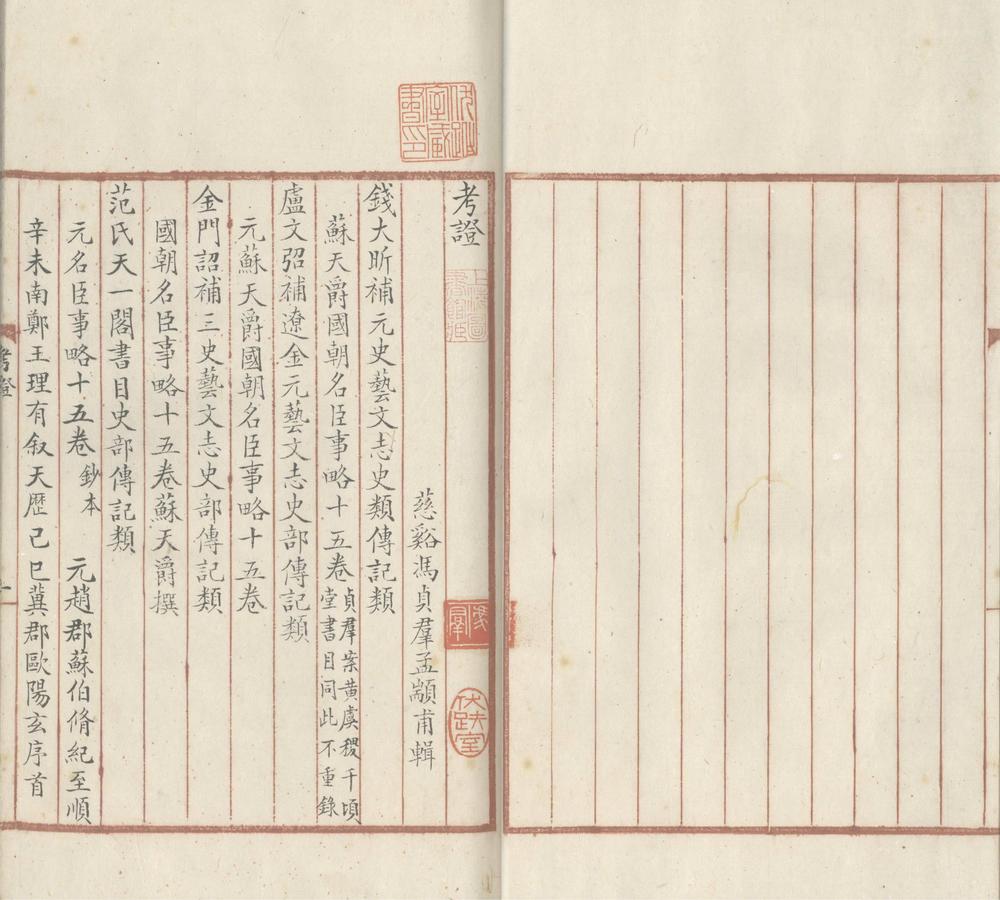 考證
慈谿馮貞羣孟顓甫輯
錢大昕補元史藝文志史類傳記類
蘇天爵國朝名臣事略十五卷貞羣案黃虞稷千頃堂書目同此不重錄
盧文弨補遼金元藝文志史部傳記類
元蘇天爵國朝名臣事略十五卷
金門詔補三史藝文志史部傳記類
國朝名臣事略十五卷蘇天爵撰
范氏天一閣書目史部傳記類
元名臣事略十五卷鈔本 元趙郡蘇伯脩紀至順
辛未南鄭王理有叙天歷己巳冀郡歐陽玄序首
考證
伏跗室藏書印
上海圖書館藏
馮羣
伏跗室